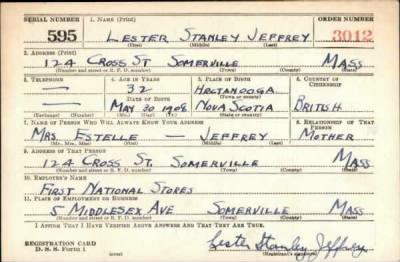 SERIAL NUMBER 1. NAME (Print) ORDER NUMBER
595 LESTER STANLEY JEFFREY 3012
(First) (Middle) (Last)
2. ADDRESS (Print)
124 CROSS ST SOMERVILLE MASS
(Number and street or R. F. D. number) (Town) (County) (State)
3. TELEPHONE 4. AGE IN YEARS 5. PLACE OF BIRTH 6. COUNTRY OF CITIZENSHIP
— 32 HECTANOOGA
DATE OF BIRTH (Town or county)
— MAY 30 1908 NOVA SCOTIA BRITISH
(Exchange) (Number) (Mo.) (Day) (Yr.) (State or country)
7. NAME OF PERSON WHO WILL ALWAYS KNOW YOUR ADDRESS 8. RELATIONSHIP OF THAT PERSON
MRS. ESTELLE — JEFFREY MOTHER
(Mr., Mrs., Miss) (First) (Middle) (Last)
9. ADDRESS OF THAT PERSON
124 CROSS ST. SOMERVILLE MASS
(Number and street or R. F. D. number) (Town) (County) (State)
10. EMPLOYER'S NAME
FIRST NATIONAL STORES
11. PLACE OF EMPLOYMENT OR BUSINESS
5 MIDDLESEX AVE SOMERVILLE MASS
(Number and street or R. F. D. number) (Town) (County) (State)
I AFFIRM THAT I HAVE VERIFIED ABOVE ANSWERS AND THAT THEY ARE TRUE.
REGISTRATION CARD
D. S. S. Form 1 (over) Lester Stanley Jeffrey
(Registrant's signature)